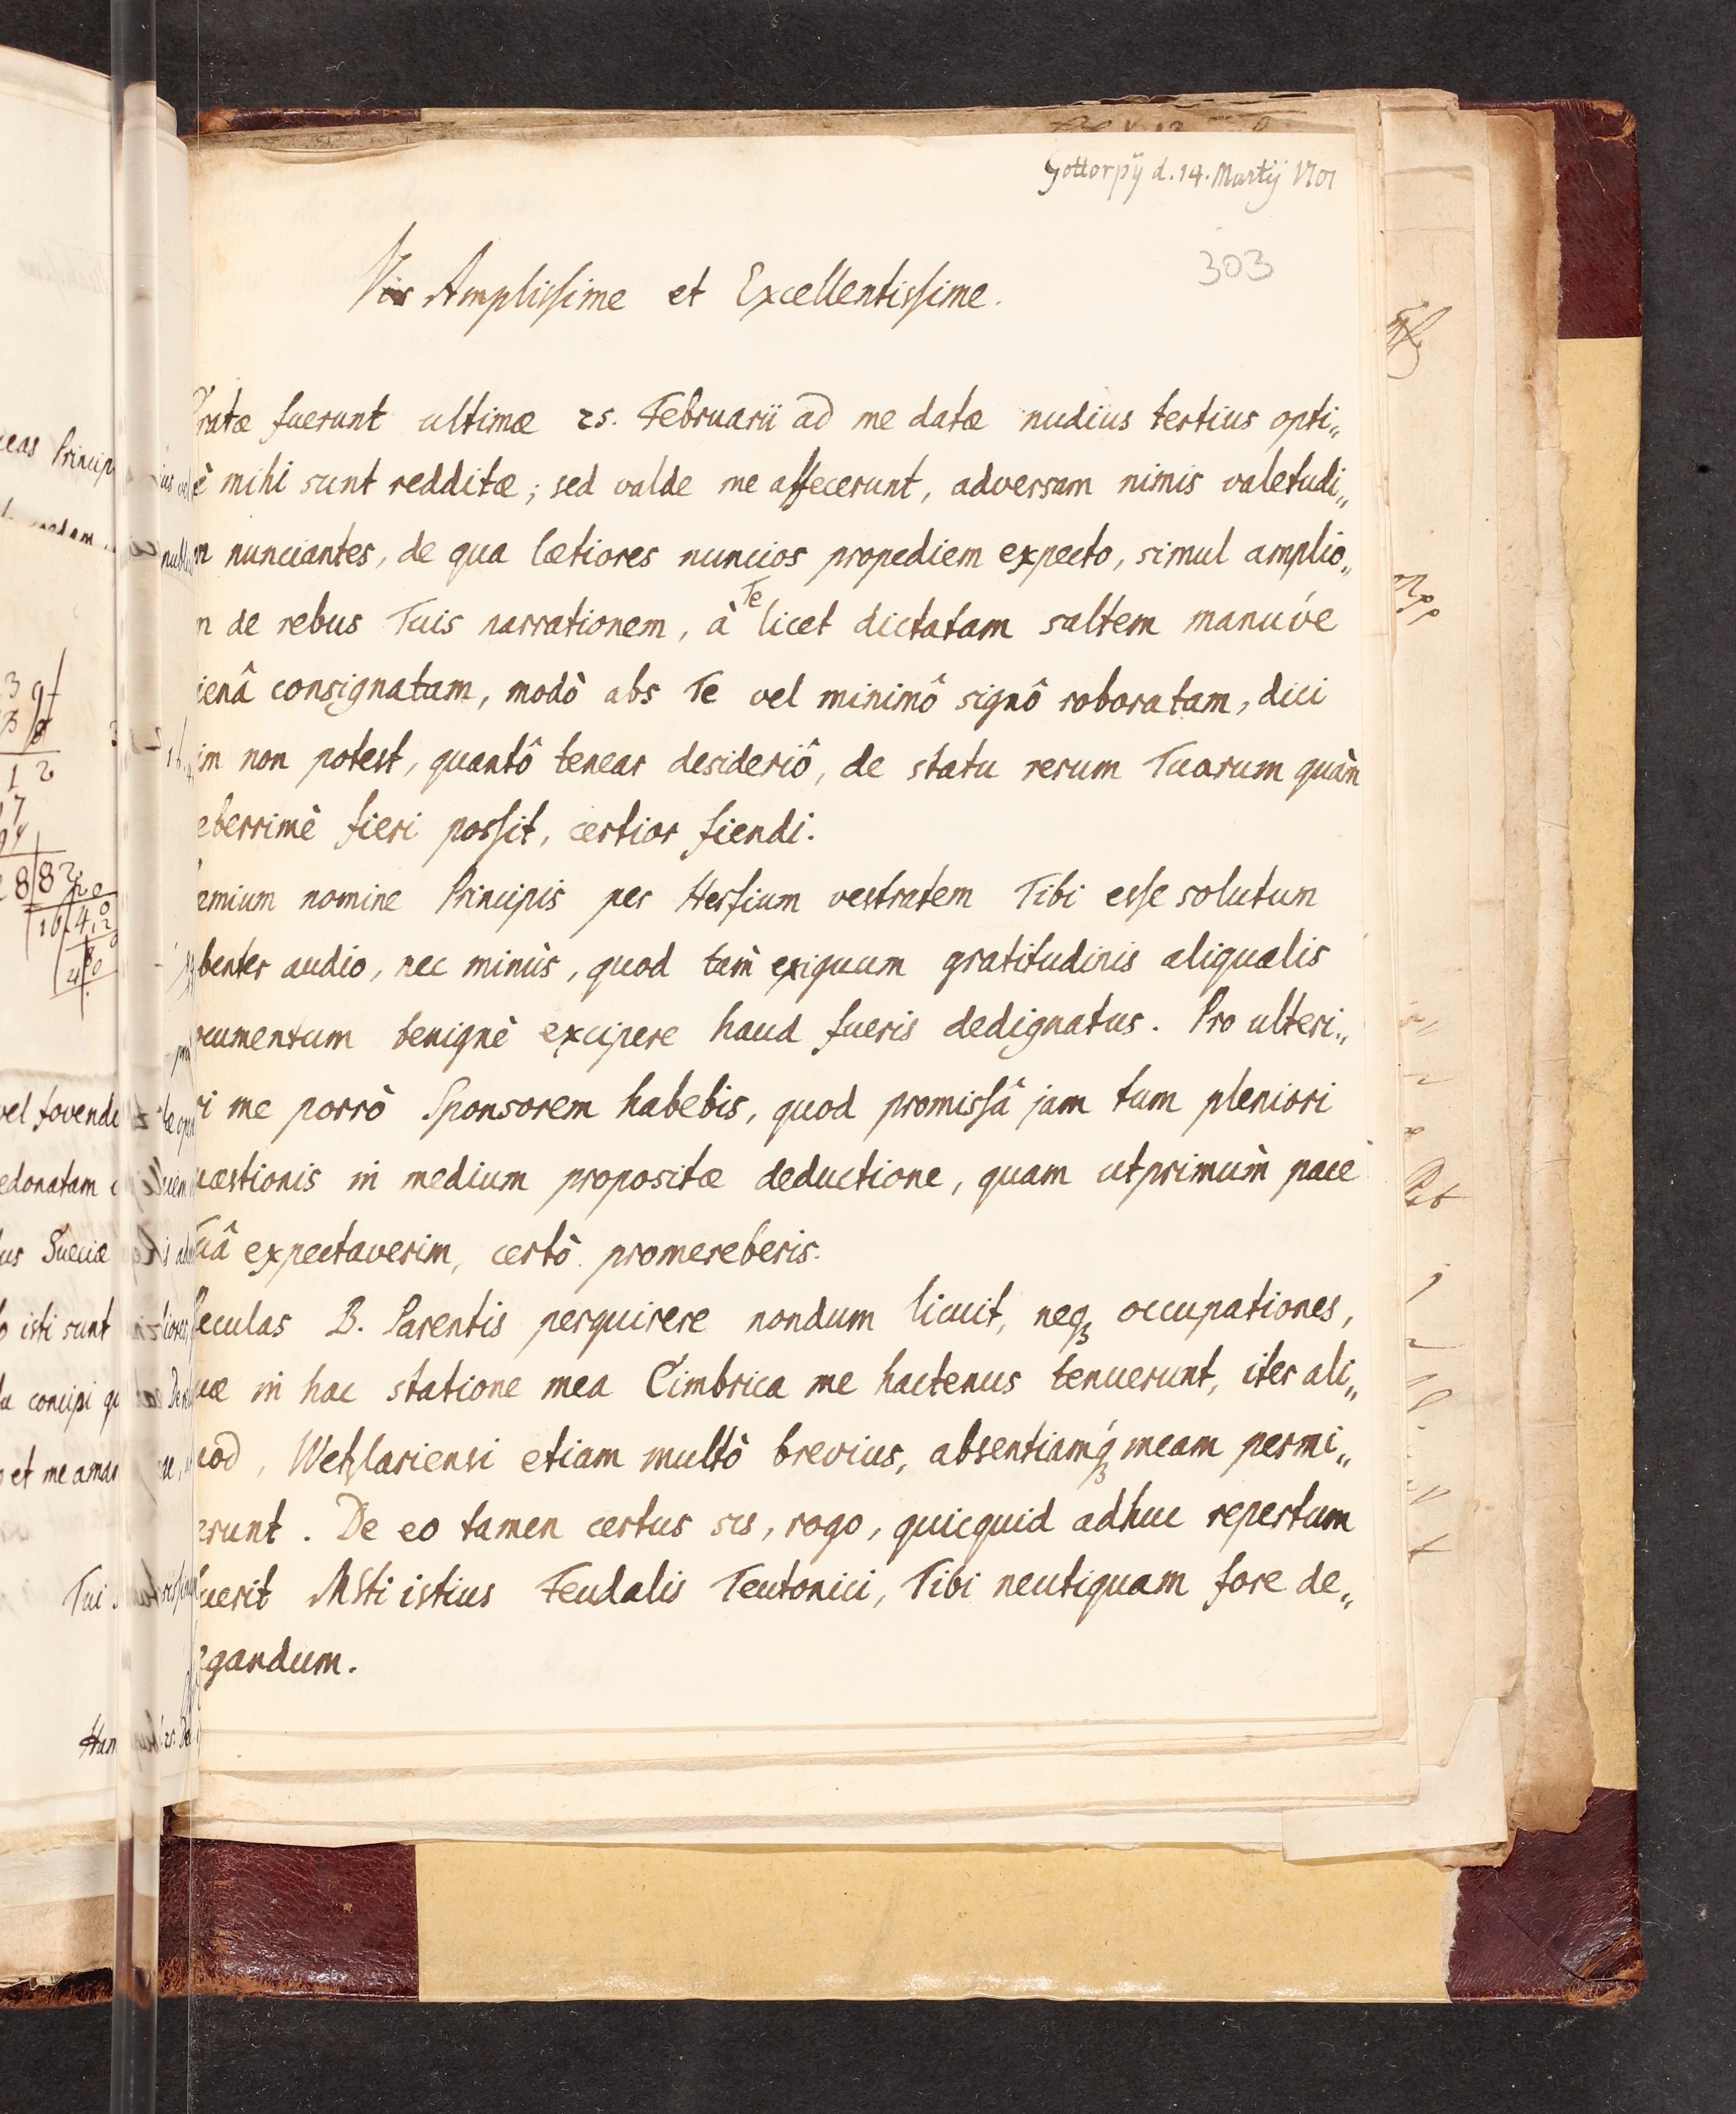 Gottorpÿ d. 14. Martÿ 1701
303
Vir Amplissime et Excellentissime.
Gratæ fuerunt ultimæ 25. Februarii ad me datæ nudius tertius opti„
è mihi sunt redditæ; sed valde me affecerunt, adversam nimis valetudi„
m nunciantes, de qua lætiores nuncios propediem expecto, simul amplio„
m de rebus Tuis narrationem, à Te licet dictatam saltem manúve
ienâ consignatam, modò abs Te vel minimô signô roboratam, dici
im non potest, quantô tenear desideriô, de statu rerum Tuarum quàm
eberrimè fieri possit, certior fiendi.
emium nomine Principis per Hessium vestratem Tibi esse solutum
benter audio, nec minùs, quod tam exiguum gratitudinis aliqualis
cumentum benignè excipere haud fueris dedignatus. Pro ulteri„
ri me porrò Sponsorem habebis, quod promissâ jam tum pleniori
uæstionis in medium propositæ deductione, quam utprimùm pace
Tuâ expectaverim, certò promereberis.
eculas B. Parentis perquirere nondum licuit, neqꝫ occupationes,
uæ in hac statione mea Cimbrica me hactenus tenuerunt, iter ali„
uod, Wetzlariensi etiam multò brevius, absentiamqꝫ meam permi„
erunt. De eo tamen certus sis, rogo, quicquid adhuc repertum
fuerit MSti istius Feudalis Teutonici, Tibi neutiquam fore de„
egandum.
eas Princip
vel fovend
edonatam
us Sueciæ
isti sunt
concipi
et me amar
Tui